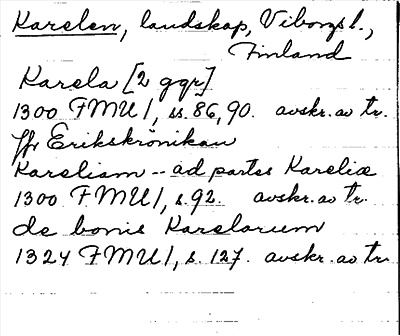 Karelen, landskap, Viborgs l.,
Finland
Karela [2 ggr]
1300 FMU 1, ss. 86, 90. avskr. av tr.
fr Erikskrönikan
Kareliam -- ad partes Kareliæ
1300 FMU 1, s. 92. avskr. av tr.
de bonis Karelorum
1324 FMU 1, s. 127. avskr. av tr.